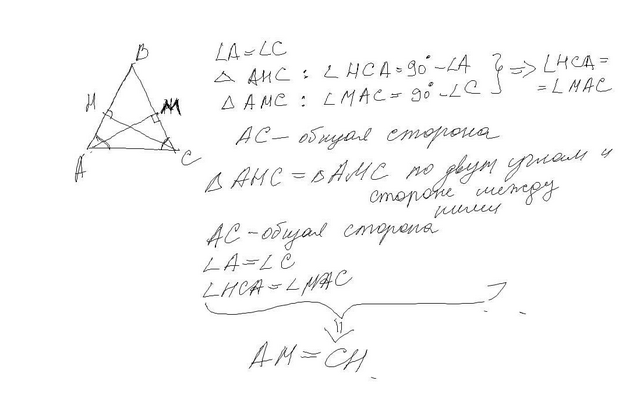 B
H
M
A
C
∠A=∠C
△ AHC : ∠HCA=90°-∠A } => ∠HCA=
△ AMC : ∠MAC= 90°-∠C =∠MAC
AC- общая сторона
△ AHC = △ AMC по двум углам и
стороне между
ними
AC - общая сторона
∠A=∠C
∠HCA=∠MAC
⇓
AM=CH